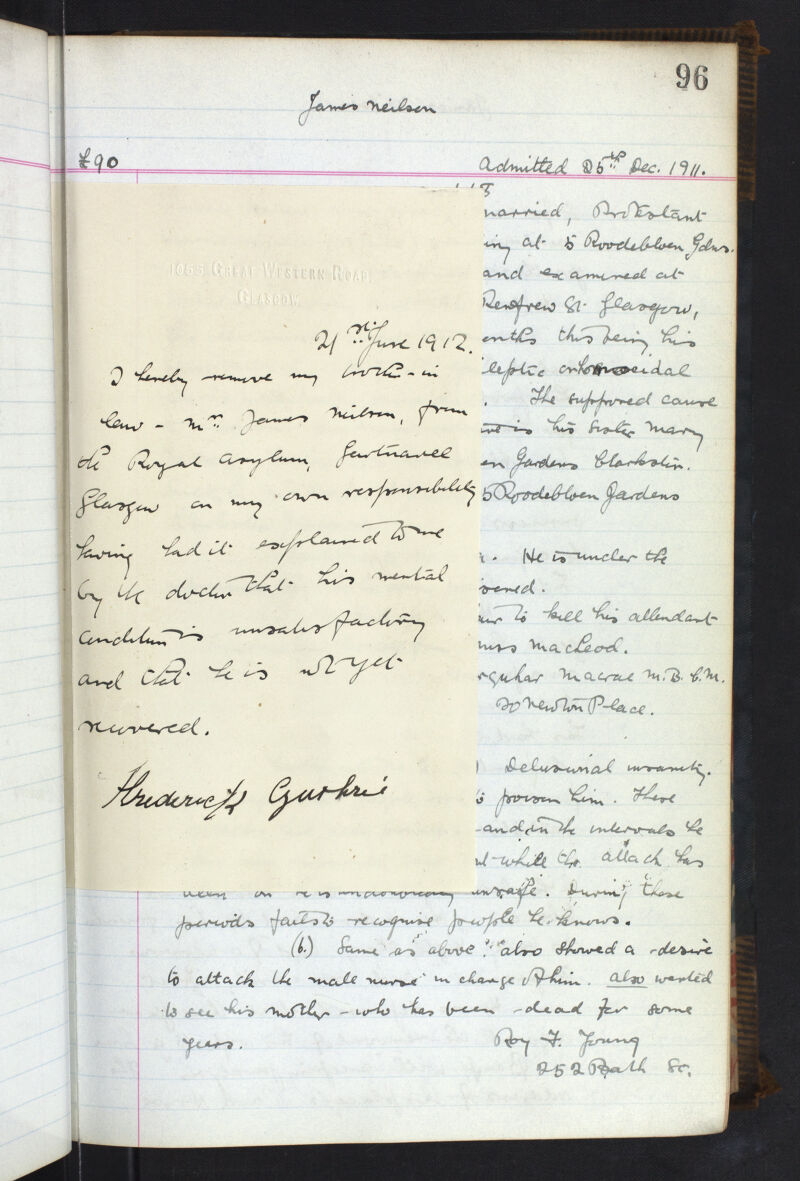 96
James Neilson
£90
Admitted 25th Dec. 1911.
married, Protestant
ing at 5 Roodebloem Gdns.
and examined at
Renfrew St. Glasgow,
onths this being his
leptic or homocidal
. The supposed cause
is his sister Mary
en Gardens Clarkston.
5 Roodebloem Gardens
. He is under the
to kill his attendant
MacLeod.
rquhar Macrae M.B. C.M.
20 Newton Place.
) Delusional insanity.
to poison him. These
and in the intervals he
while the attack has
been on he is unsafe. During these
periods fails to recognise people he knows.
(b.) Same as above: also showed a desire
to attack the male nurse in charge of him. also wanted
to see his mother - who has been dead for some
years.
Roy F. Young
252 Bath St.
1055 Great Western Road
Glasgow
21st June 1912.
I hereby remove my brother-in
law - Mr. James Neilson, from
the Royal Asylum, Gartnavel
Glasgow on my own responsibility
having had it explained to me
by the doctor that his mental
condition is unsatisfactory
and that he is not yet
recovered.
Frederick Guthrie